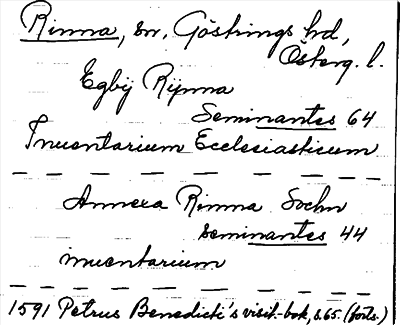 Rinna, sn, Göstrings hd,
Österg. l.
Egbÿ Rÿnna
Seminantes 64
Inuentarium Ecclesiasticum
Annexa Rinna Sochn
Seminantes 44
inuentarium
1591 Petrus Benedicti's visit.-bok, s. 65. (forts.)